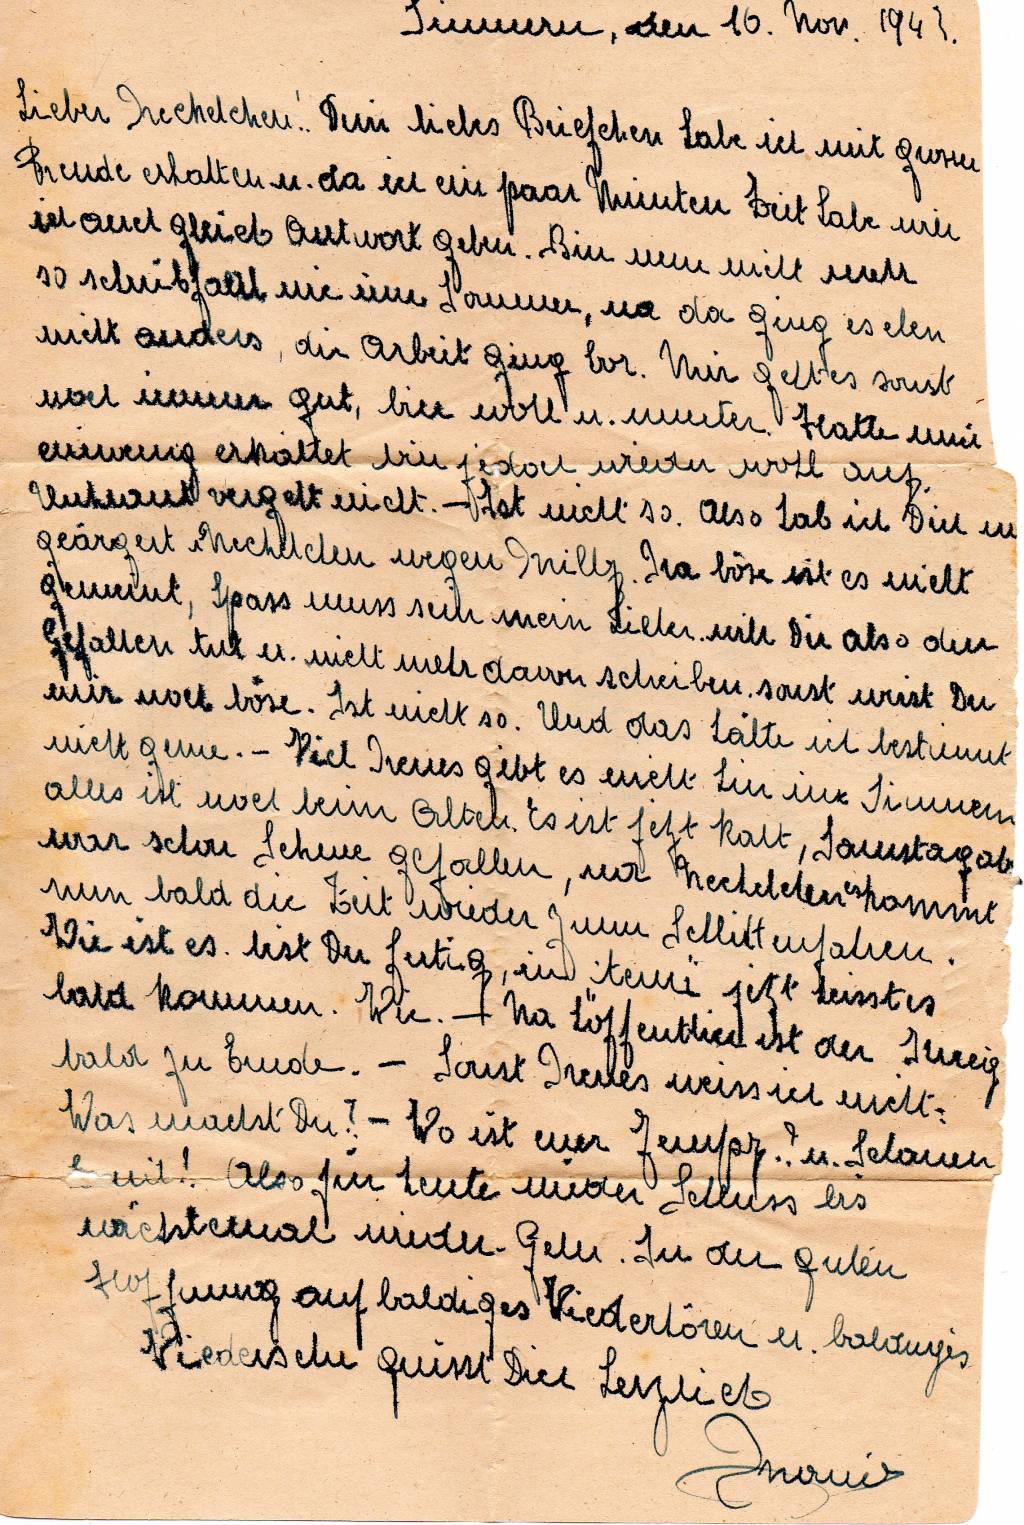 Simmern, den 16. Nov. 1943.
Lieber Mechelchen! Dein liebes Briefchen habe ich mit grossen
Freude erhalten u. da ich ein paar Minuten Zeit habe will
ich auch gleich Antwort geben. Bin nun nicht mehr
so schreibfaul wie im Sommer, na da ging es eben
nicht anders, die Arbeit ging vor. Mir geht es sonst
noch immer gut, bin wohl u. munter. Hatte mich
einwenig erkältet bin jedoch wieder wohl auf.
Unkraut vergeht nicht. - Ist nicht so. Also hab ich Dich
geärgert Mechelchen wegen Milly. Na böse ist es nicht
gemeint, Spass muss sein mein Lieber. will Dir also den
Gefallen tut u. nicht mehr davon schreiben. sonst wirst Du
mir noch böse. Ist nicht so. Und das hätte ich bestimmt
nicht gerne. - Viel Neues gibt es nicht hin im Simmern
alles ist noch beim Alten. Es ist jetzt kalt, Samstag ab
war schon Schnee gefallen, na Mechelchen es kommt
nun bald die Zeit wieder zum Schlittenfahren.
Wie ist es. bist Du fertig, in jetzt heisst es
bald kommen. Wie. - Na höffentlich ist der
bald zu Ende. - Sonst Neues weiss ich nicht.
Was machst Du? - Wo ist euer ? u.
Also für heute wieder Schluss bis
nächstemal wieder. Gell. In der guten
Hoffnung auf baldiges Wiederhören u. baldiges
Wiedersehn grüsst Dich herzlich